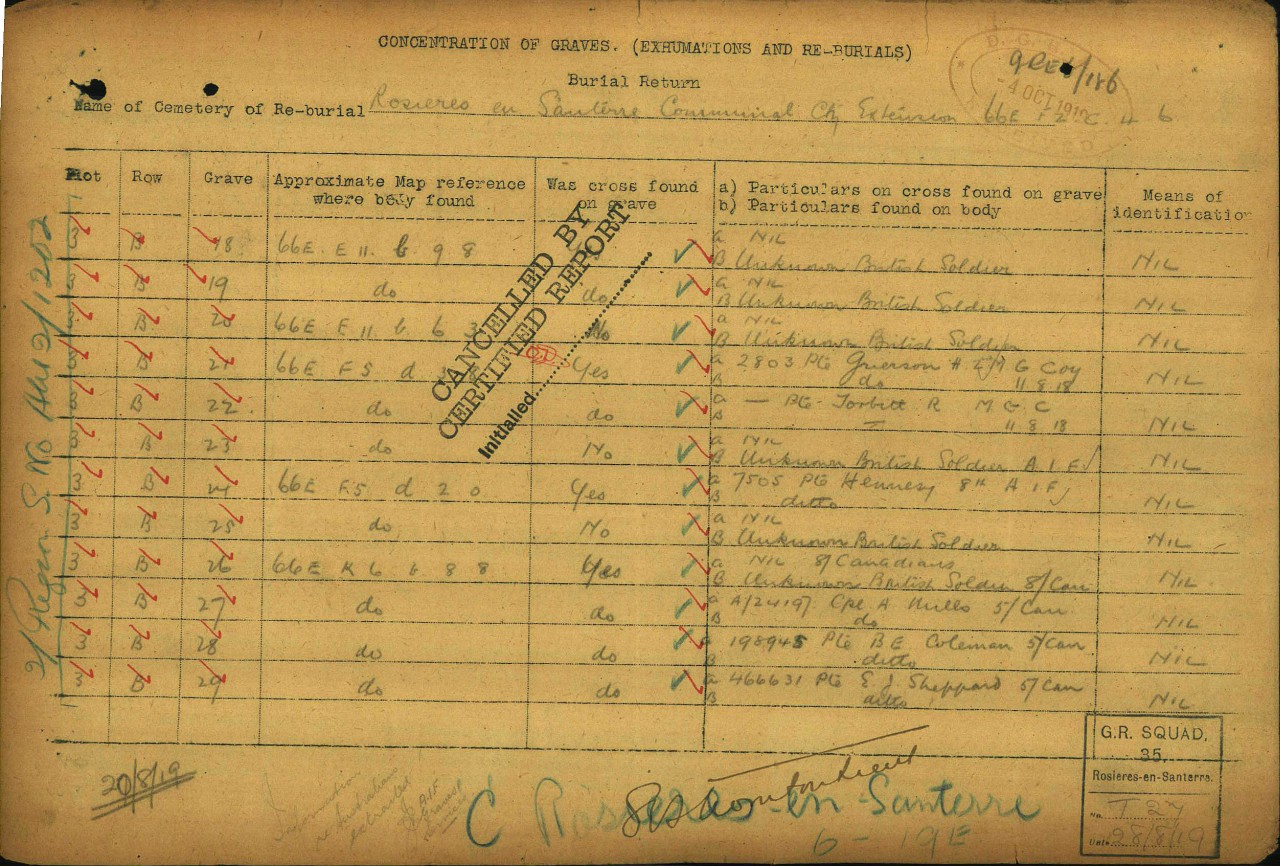 CONCENTRATION OF GRAVES. (EXHUMATIONS AND RE-BURIALS)
Burial Return
4 OCT 1919
Name of Cemetery of Re-burial Rosieres en Santerre Communal Cty Extension 66E F 2 C 4 6
Plot Row Grave Approximate Map reference where body found Was cross found on grave a) Particulars on cross found on grave b) Particulars found on body Means of identification
3 B 18 66E. E 11. b. 9 8 a NIL
B Unknown British Soldier NIL
3 B 19 do do a NIL
B Unknown British Soldier NIL
3 B 20 66E E 11 b 6 3 No a NIL
B Unknown British Soldier NIL
3 B 21 66E F5 d Yes a 2803 Pte Grierson H. M G Coy
B do 11 8 18 NIL
3 B 22 do do a — Pte Torbitt R M G C
B 11 8 18 NIL
3 B 23 do No a NIL
B Unknown British Soldier A.I.F. NIL
3 B 24 66E F.5 d 2 0 Yes a 7505 Pte Hennesy 8th A I F
B ditto NIL
3 B 25 do No a NIL
B Unknown British Soldier NIL
3 B 26 66E K 6 b 8 8 Yes a NIL 8/Canadians
B Unknown British Soldier 8/Can NIL
3 B 27 do do a A/24197 Cpl A Mills 5/Can
B do NIL
3 B 28 do do a 198945 Pte B E Coleman 5/Can
B ditto NIL
3 B 29 do do a 466631 Pte E J. Sheppard 5/Can
B ditto NIL
CANCELLED BY
CERTIFIED REPORT
Initialled
20/8/19
C Rosieres-en-Santerre
6-19E
G.R. SQUAD,
35,
Rosieres-en-Santerre.
No. T 27
Date 28/8/19